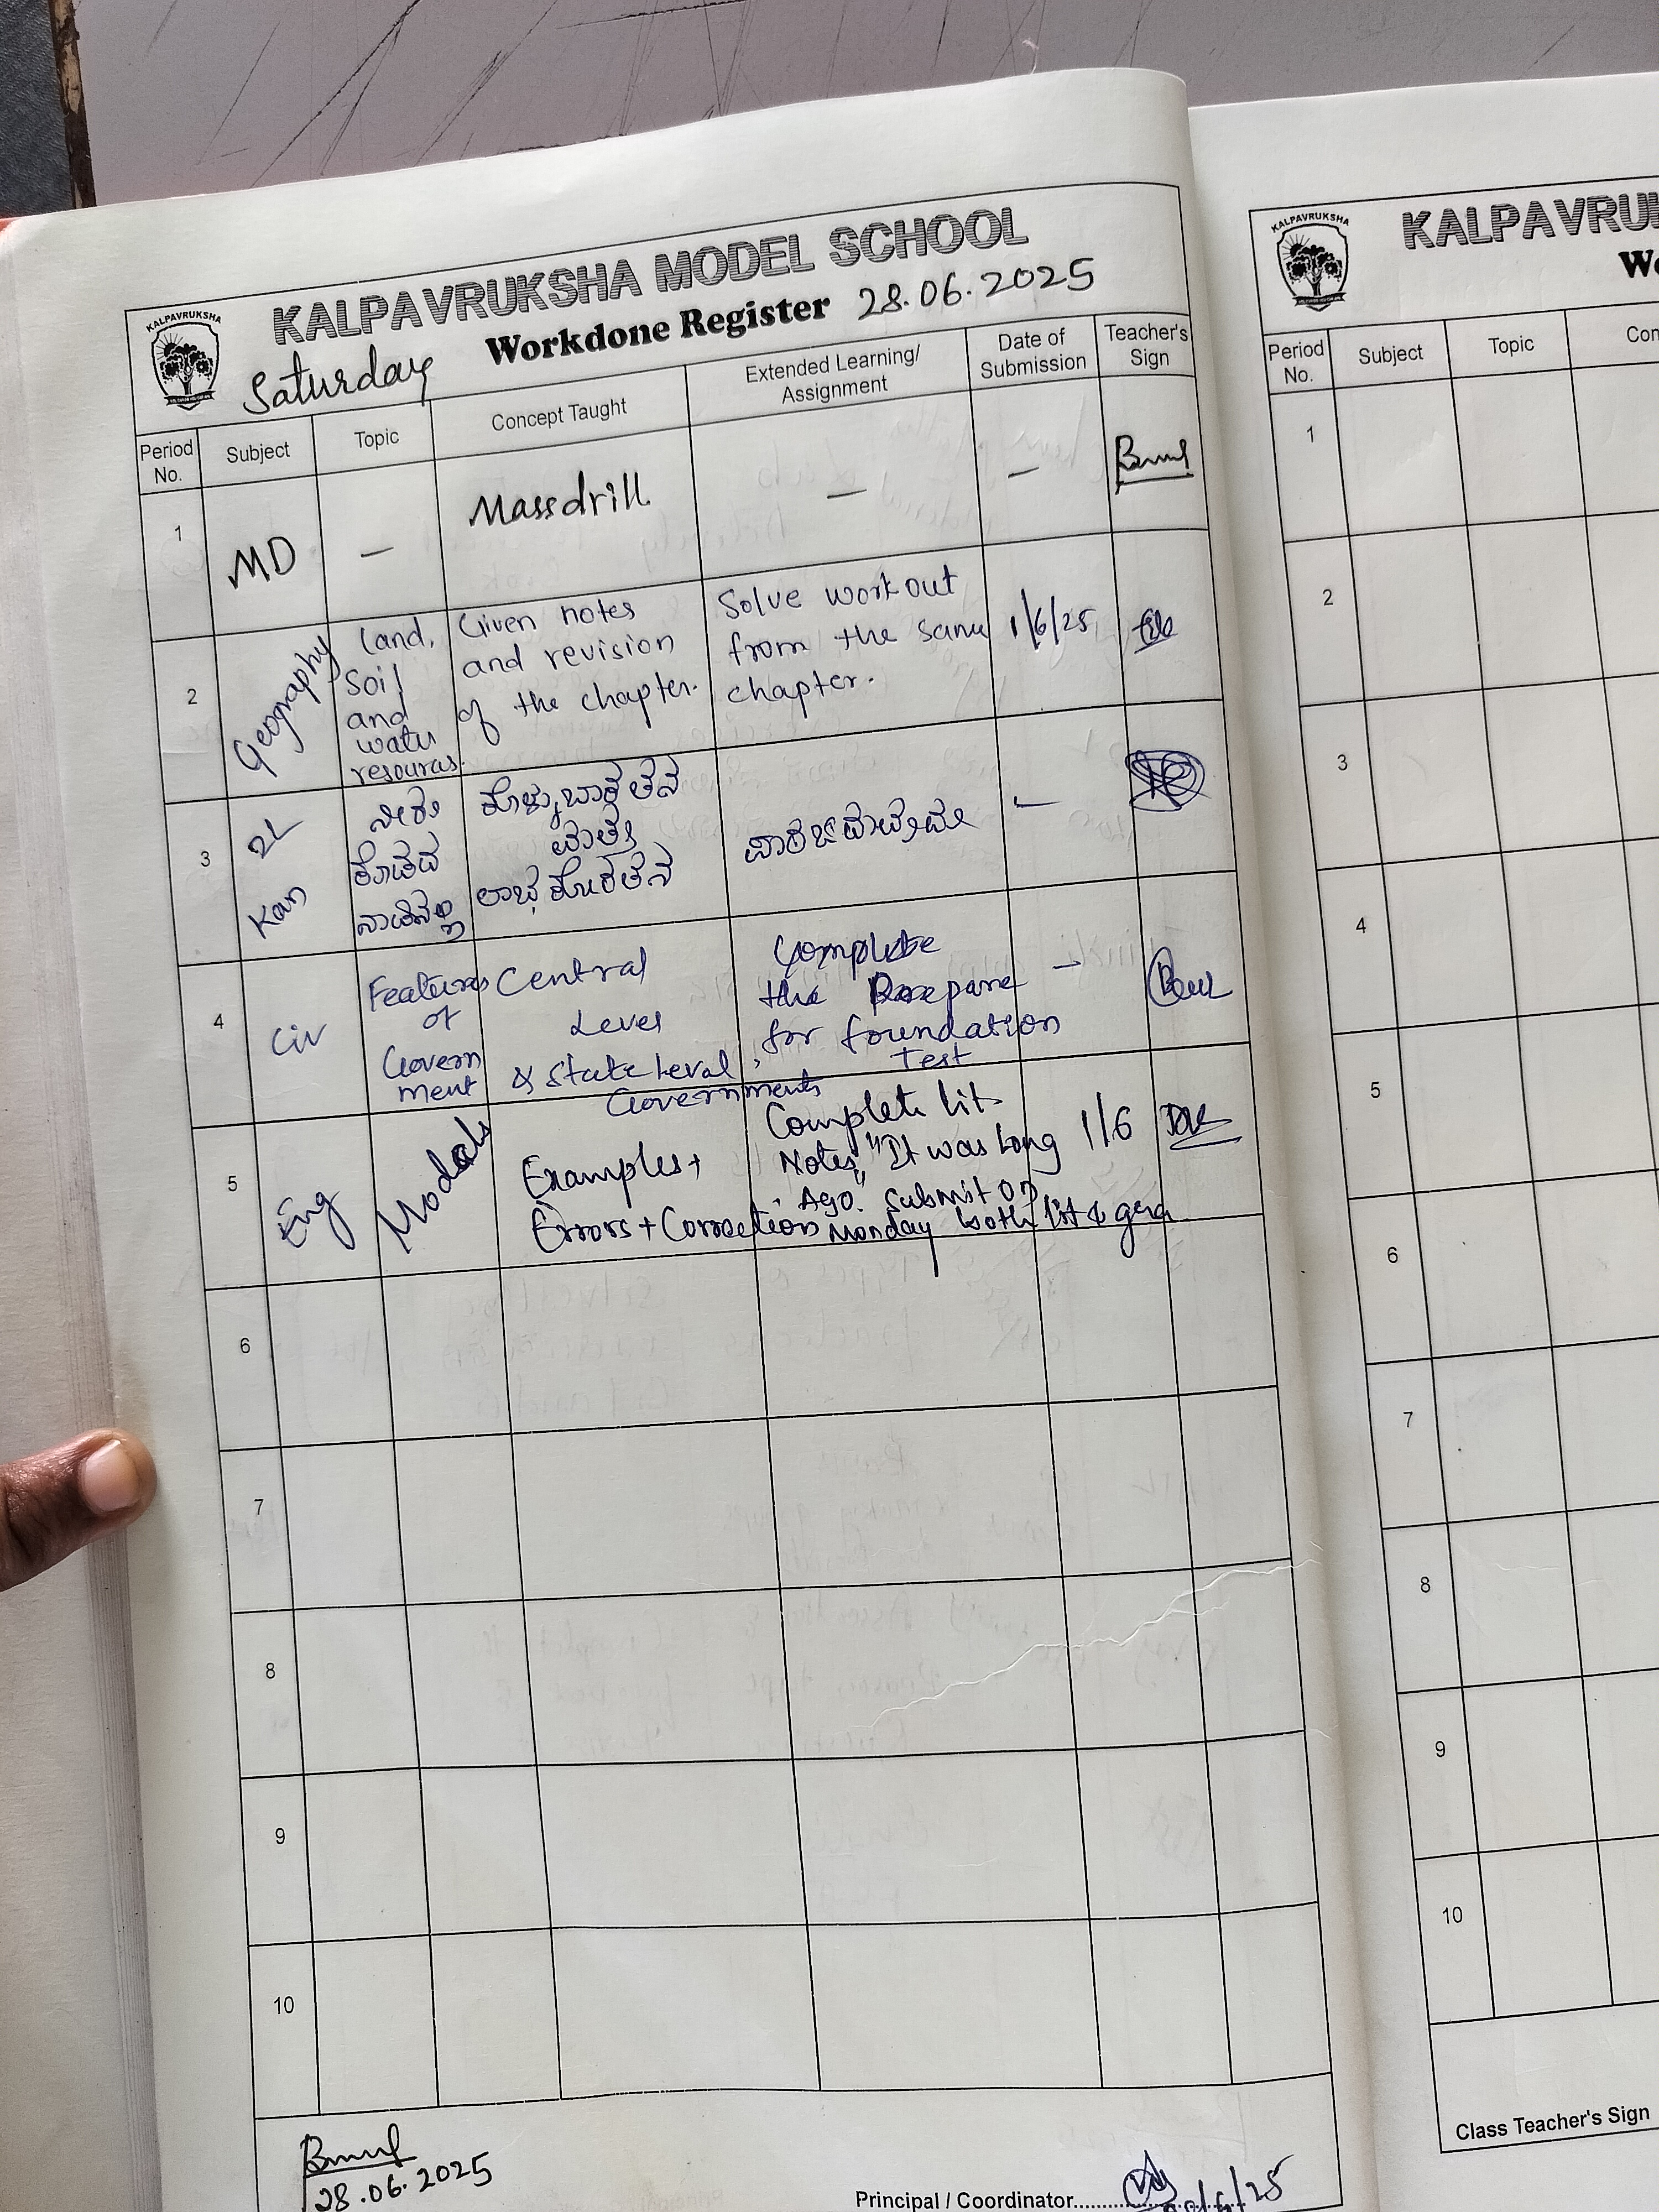 KALPAVRUKSHA
KALPAVRUKSHA MODEL SCHOOL
Workdone Register 28.06.2025
Saturday
Period No.
Subject
Topic
Concept Taught
Extended Learning/ Assignment
Date of Submission
Teacher's Sign
1
MD
—
Massdrill
—
—
2
Geography
Land,
Soil
and
water
resources.
Given notes
and revision
of the chapter.
Solve workout
from the same
chapter.
1/6/25
3
2L
Kan
ನೀರು
ಕೊಡದ
ಕೊಳ್ಳುಬಾಕತನ
ಮತ್ತು
ಲಾಭಕೋರತನ
—
4
Civ
Features
of
Govern
ment
Central
Level
& State Leval
Governments
Complete
the Prepare
for foundation
Test
—
5
Eng
Modals
Examples+
Errors + Correction
Complete Lit
Notes, "It was Long
Ago." Submit on
Monday both lit &
1/6
6
7
8
9
10
28.06.2025
Principal / Coordinator
KALPAVRUKSHA
KALPAVRU
Period No.
Subject
Topic
Con
1
2
3
4
5
6
7
8
9
10
Class Teacher's Sign